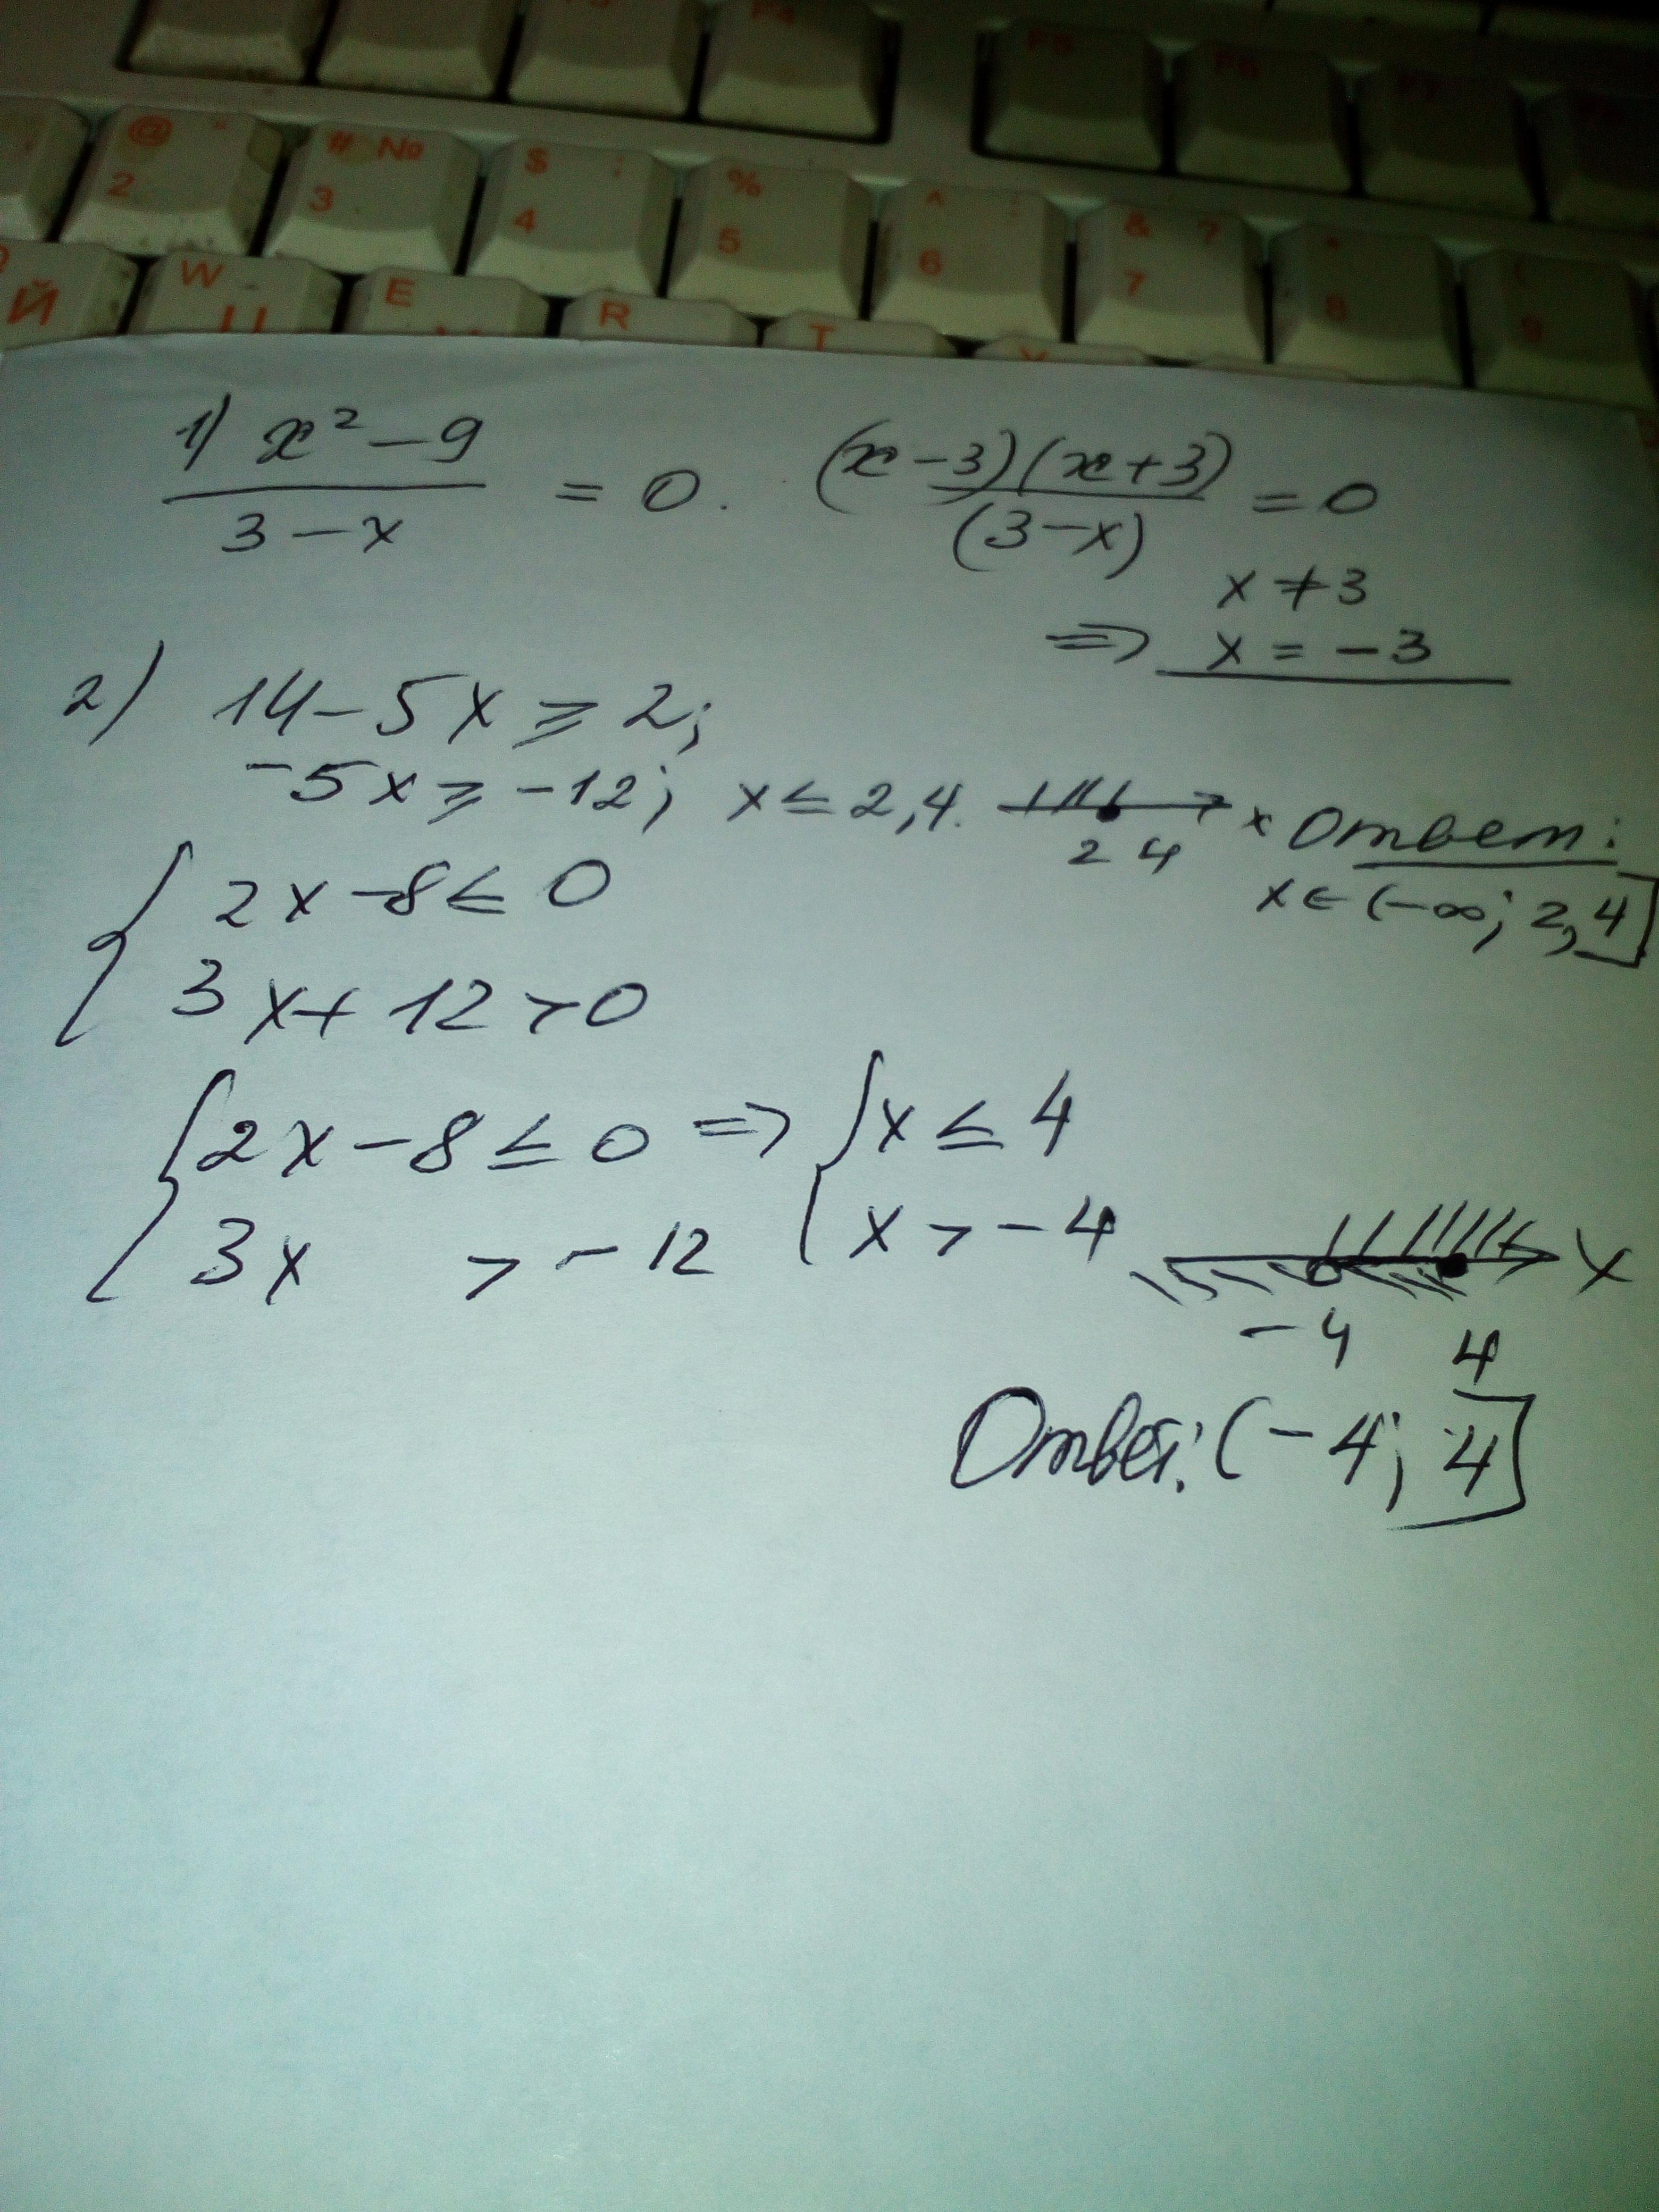 F4 F5 F6 F7
@ " # № $ ; % ^ : & ? * (
2 3 4 5 6 7 8 9
Й W Ц E R T
1) x² - 9 / 3 - x = 0. (x - 3)(x + 3) / (3 - x) = 0
x ≠ 3
=> x = -3
2) 14 - 5x ≥ 2;
-5x ≥ -12; x ≤ 2,4. 2 4 x Ответ:
x ∈ (-∞; 2,4]
{ 2x - 8 ≤ 0
3x + 12 > 0
{ 2x - 8 ≤ 0 => { x ≤ 4
3x > -12 x > -4 x
-4 4
Ответ: (-4; 4]